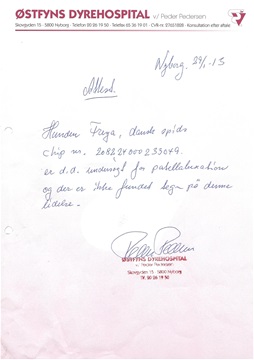 ØSTFYNS DYREHOSPITAL v/ Peder Pedersen
Skovgyden 15 - 5800 Nyborg - Telefon 00 86 19 50
Nyborg, 29/1-13
Attest.
Hunden Freja, dansk spids
chip nr. 208224000233049.
er d.d. undersøgt for patellaluxation
og der er ikke fundet tegn på denne
lidelse.
ØSTFYNS DYREHOSPITAL
v/ Peder Pedersen
Skovgyden 15 - 5800 Nyborg
Tlf. 00 86 19 50